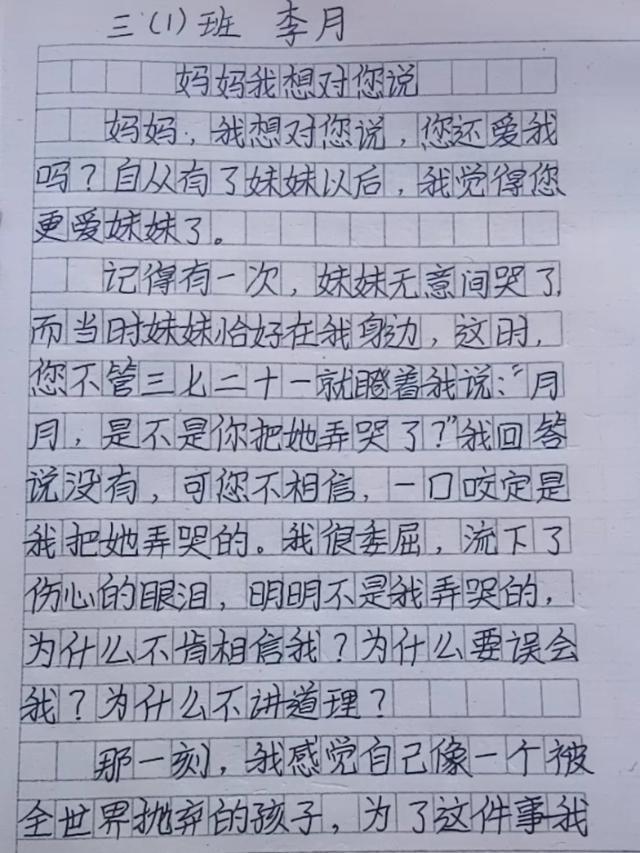 三(1)班 李月
妈妈我想对您说
妈妈,我想对您说,您还爱我
吗?自从有了妹妹以后,我觉得您
更爱妹妹了。
记得有一次,妹妹无意间哭了,
而当时妹妹恰好在我身边,这时,
您不管三七二十一就瞪着我说:“月
月,是不是你把她弄哭了?”我回答
说没有,可您不相信,一口咬定是
我把她弄哭的。我很委屈,流下了
伤心的眼泪,明明不是我弄哭的,
为什么不肯相信我?为什么要误会
我?为什么不讲道理?
那一刻,我感觉自己像一个被
全世界抛弃的孩子,为了这件事我